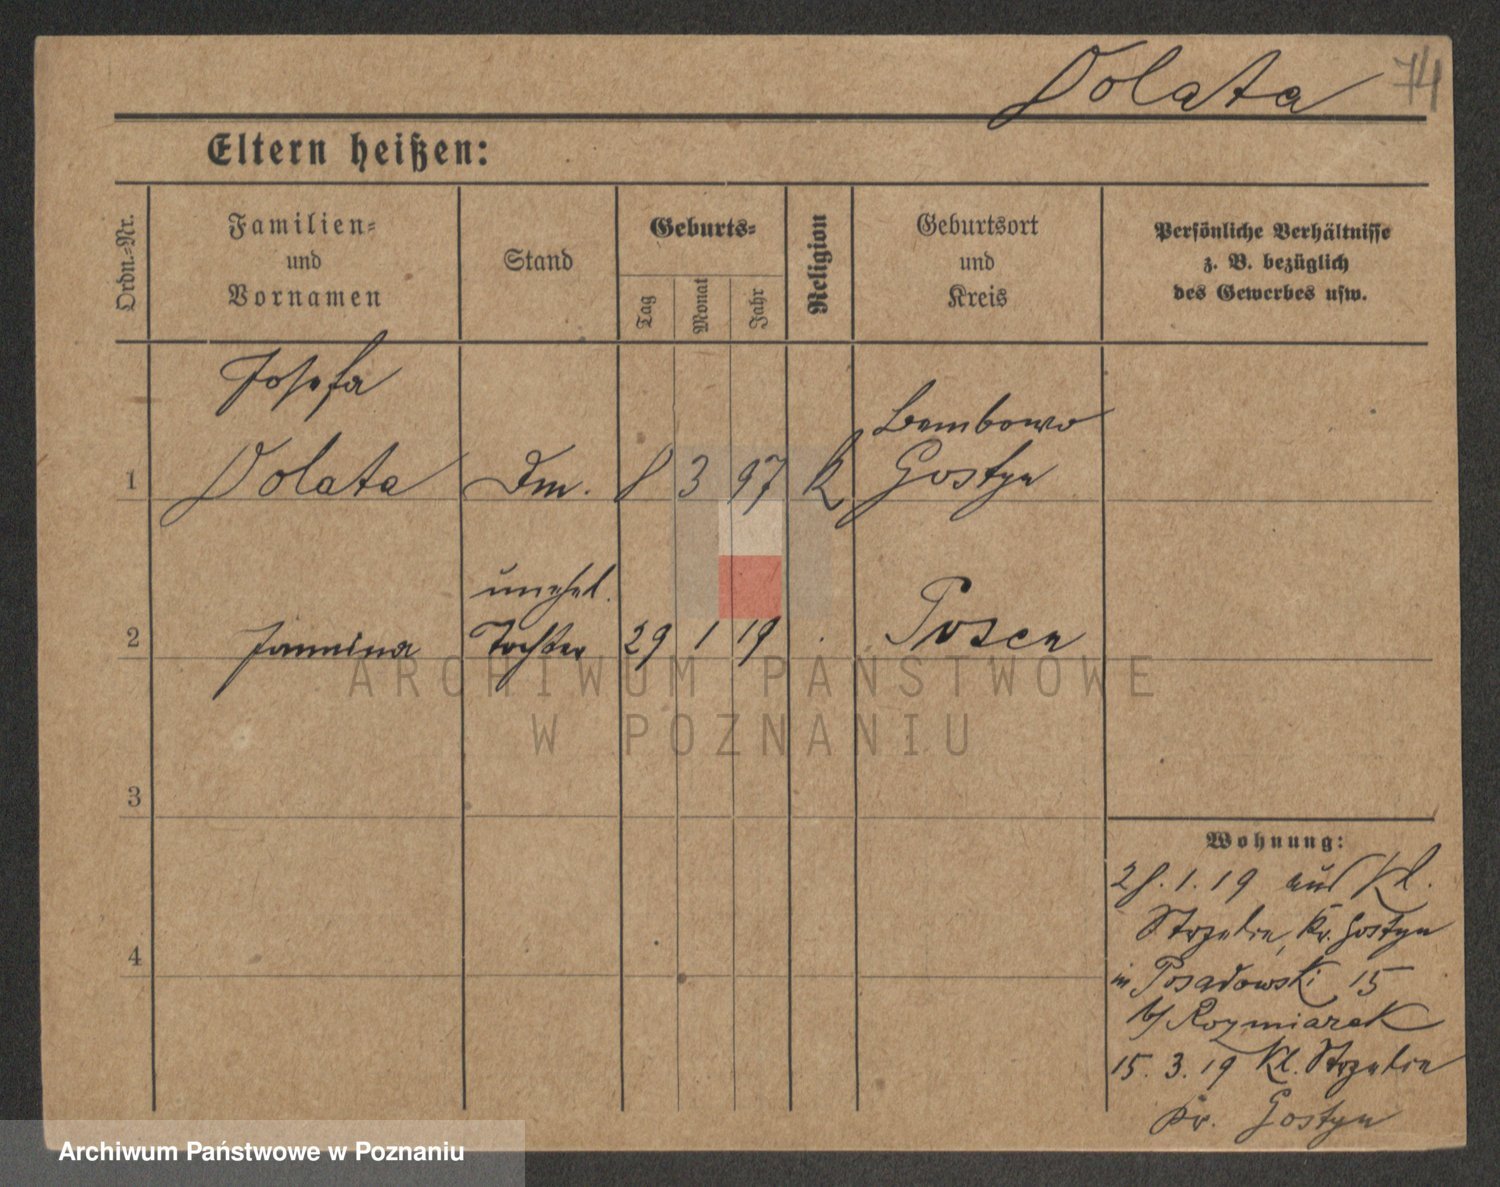 Dolata 74
Eltern heißen:
Ordn.-Nr.
Familien- und Vornamen
Stand
Geburts-
Tag
Monat
Jahr
Religion
Geburtsort und Kreis
Persönliche Verhältnisse
z. B. bezüglich
des Gewerbes usw.
Josefa
Bembowo
1 Dolata Dm. 8 3 97 K Gostyn
unehel.
2 Jannina Tochter 29 1 19 Posen
3
Wohnung:
28. 1. 19 aus Kl.
Strzelce, Kr. Gostyn
4
in Posadowski 15
b/ Rozmiarek
15. 3. 19 Kl. Strzelce
Kr. Gostyn
ARCHIWUM PAŃSTWOWE
W POZNANIU
Archiwum Państwowe w Poznaniu